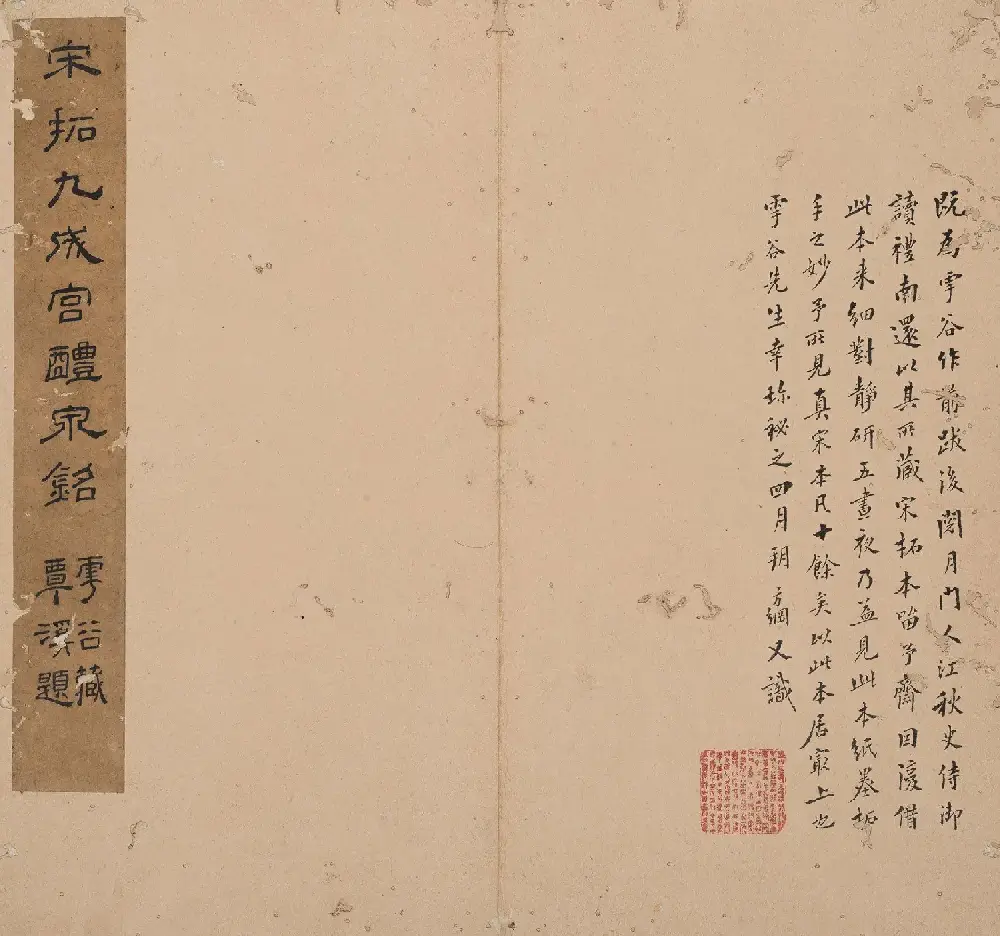 既為雩谷作前跋後閱月門人江秋史侍御
讀禮南還以其所藏宋拓本留予齋因復借
此本来細對靜研五晝夜乃益見此本紙墨拓
手之妙予所見真宋本凡十餘矣以此本居冣上也
雩谷先生幸珎秘之四月朔方綱又識
宋拓九成宮醴泉銘
雩谷藏
覃溪題